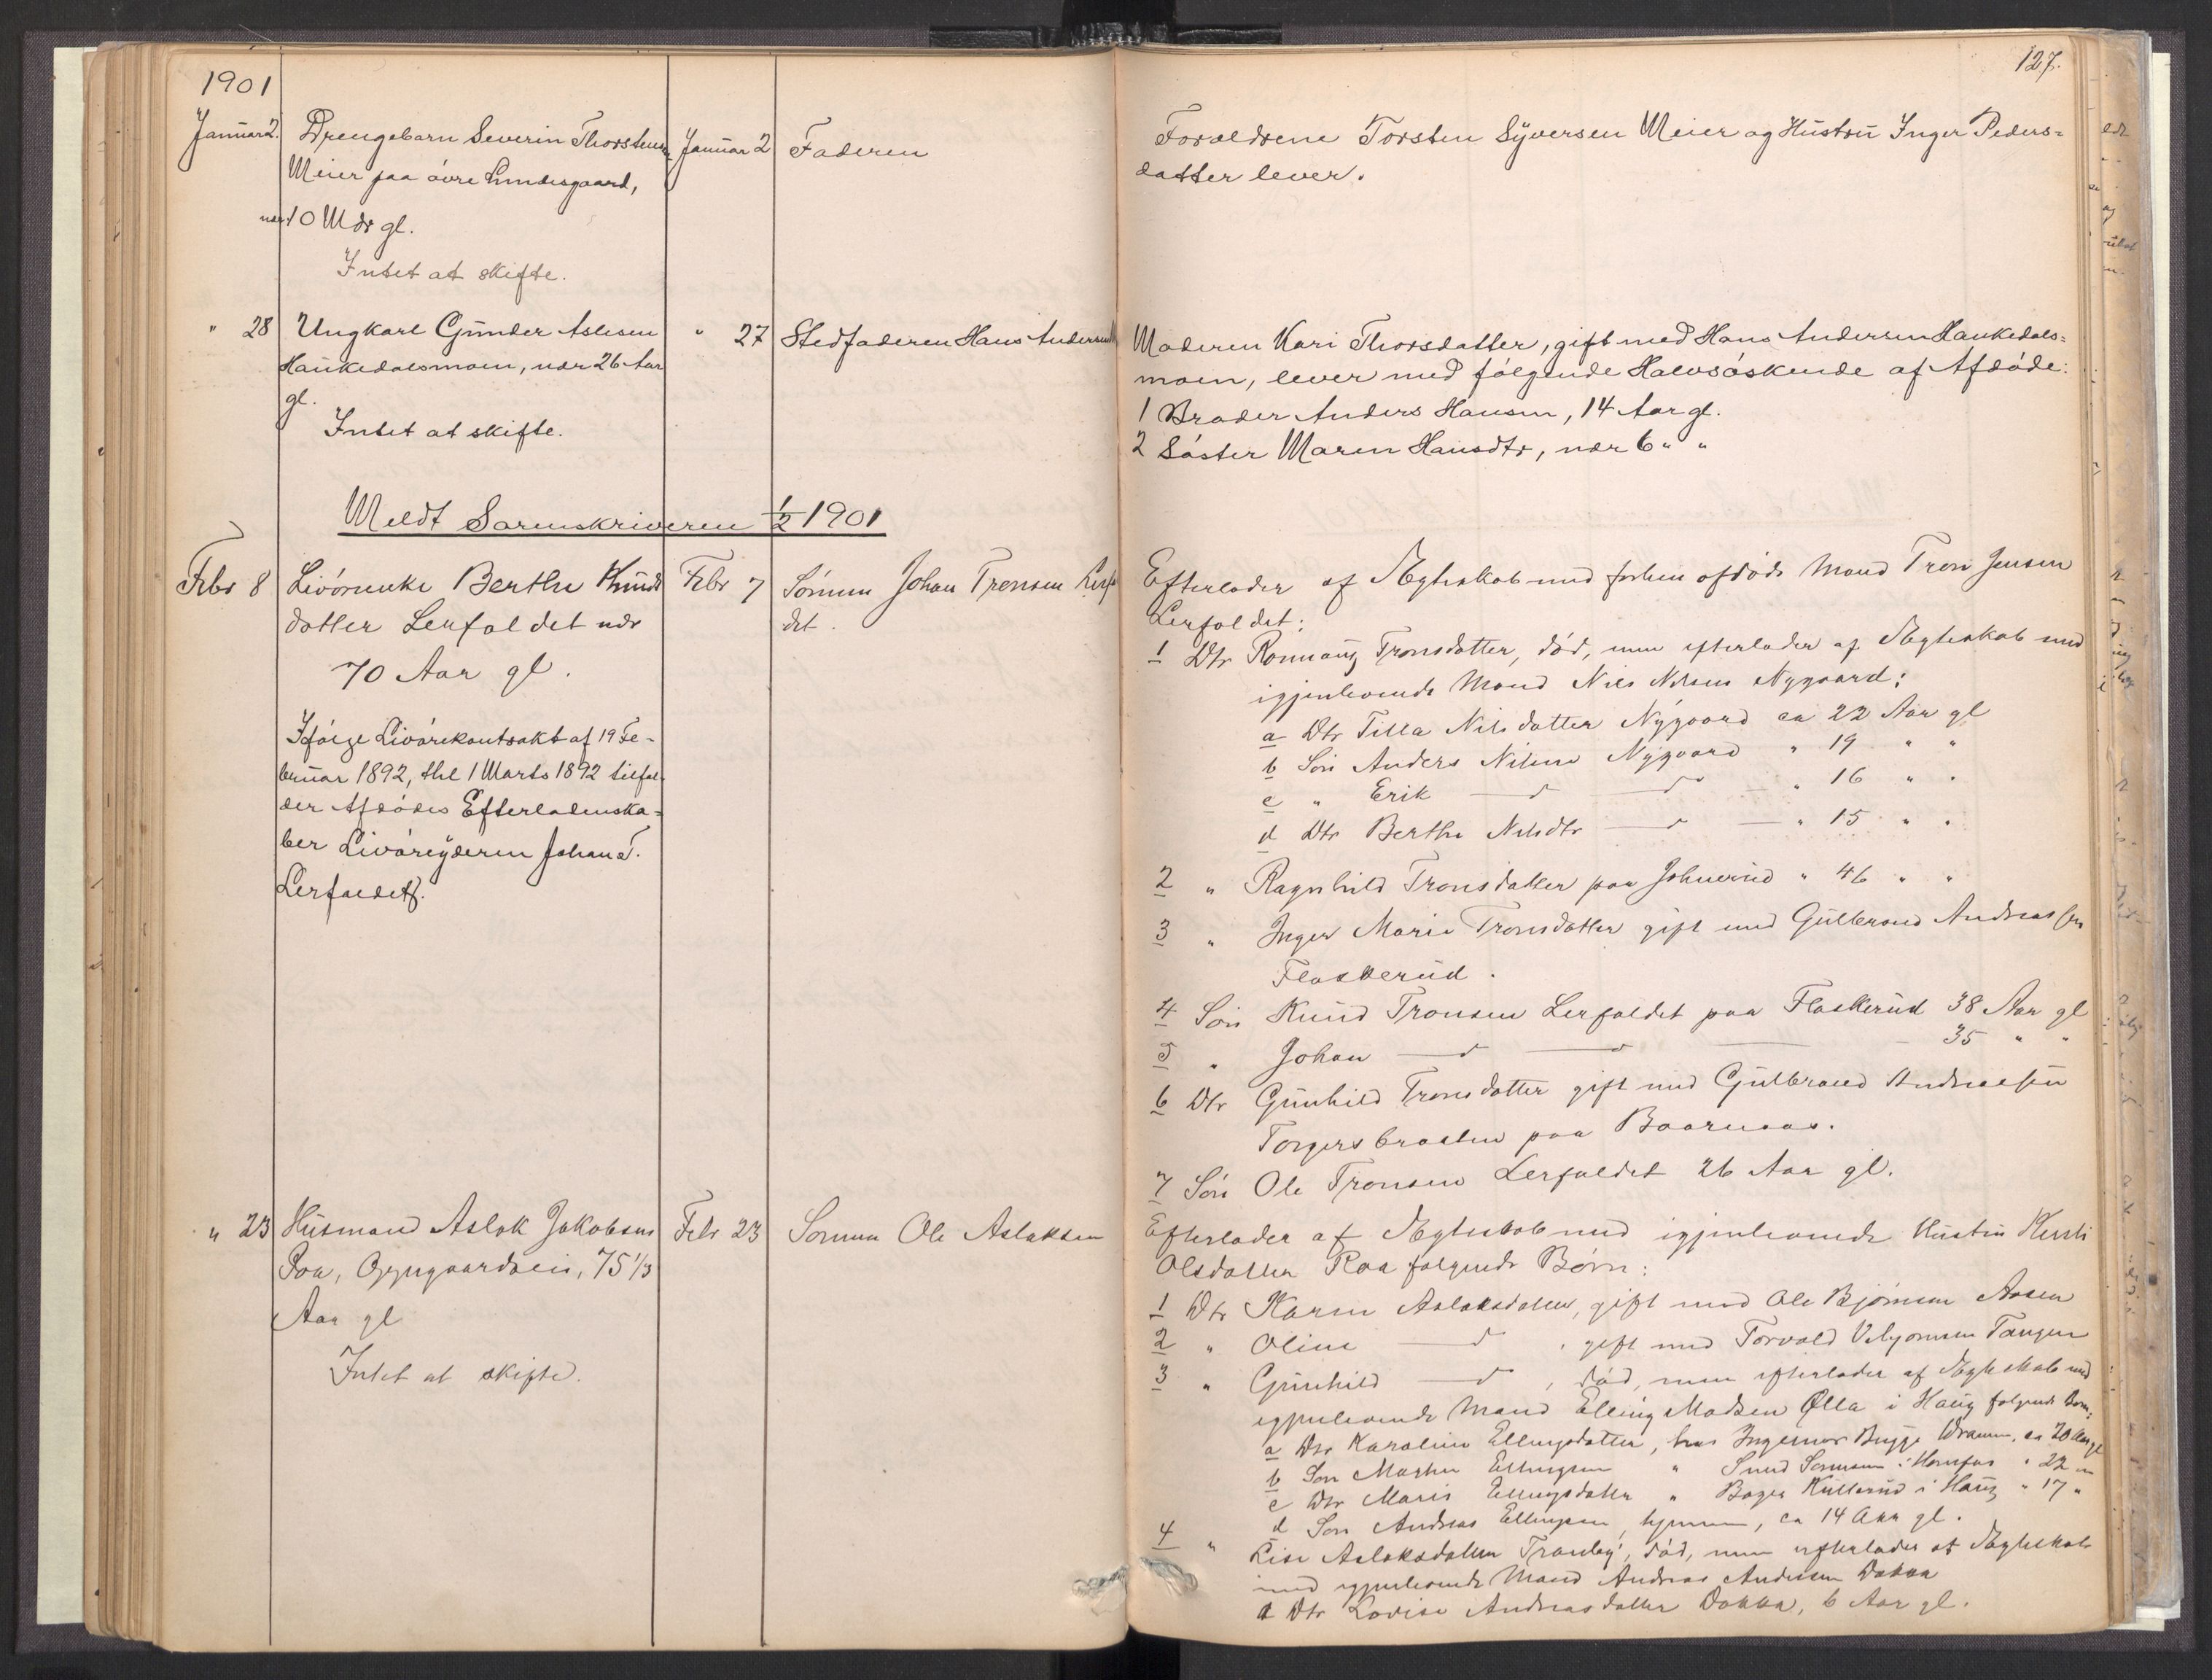 127.
1901
Januar 2. Drengebarn Severin Thorstensen Januar 2 Faderen
Meier paa övre Lindesgaard,
nær 10 Mdr gl.
Intet at skifte.
Forældrene Torsten Syversen Meier og Hustru Inger Peders=
datter lever.
" 28 Ungkarl Gunder Aslesen " 27 Stedfaderen Hans Andersen
Haukedalsmoen, nær 26 Aar
gl.
Intet at skifte.
Moderen Kari Thorsdatter, gift med Hans Andersen Haukedals=
moen, lever med fölgende Halvsöskende af Afdöde:
1 Broder Anders Hansen, 14 Aar gl.
2 Söster Maren Hansdtr, nær 6 " "
Meldt Sorenskriveren 1/2 1901
Febr 8 Livörenke Berthe Knuds Febr 7 Sønnen Johan Tronsen Lerfal
datter Lerfaldet nær det.
70 Aar gl.
Ifölge Livörekontrakt af 19 Fe-
bruar 1892, thl 1 Marts 1892 tilfal-
der Afdödes Efterladenska=
ber Livöreyderen Johan T.
Lerfaldet.
Efterlader af Ægteskab med forhen afdöde Mand Tron Jensen
Lerfaldet:
1 Dtr Ronnaug Tronsdatter, död, men efterlader af Ægteskab med
igjenlevende Mand Nils Nilsen Nygaard:
a Dtr Tilla Nilsdatter Nygaard ca 22 Aar gl
b Sön Anders Nilsen Nygaard " 19 " "
c " Erik — d — d — " 16 " "
d Dtr Berthe Nilsdtr — d — " 15 " "
2 " Ragnhild Tronsdatter paa Johnerud " 46 " "
3 " Inger Marie Tronsdatter gift med Gulbrand Andreassen
Flaskerud.
4 Sön Knud Tronsen Lerfaldet paa Flaskerud 38 Aar gl
5 " Johan — d — d — 35 " "
6 Dtr Gunhild Tronsdatter gift med Gulbrand Andreasen
Torgersbraaten paa Baarnaas.
7 Sön Ole Tronsen Lerfaldet 26 Aar gl.
" 23 Husmand Aslak Jakobsen Febr 23 Sønnen Ole Aslaksen
Roa, Oppegaardseie, 75 1/3
Aar gl
Intet at skifte.
Efterlader af Ægteskab med igjenlevende Hustru Kersti
Olsdatter Roa følgende Børn:
1 Dtr Karen Aslaksdatter, gift med Ole Bjørnsen Aasen
2 " Oline — d — , gift med Torvald Tangen
3 " Gunhild — d — , död, men efterlader af Ægteskab med
igjenlevende Mand Elling Madsen Ølla i Haug følgende Børn:
a Dtr Karoline Ellingsdatter, hos Ingeniør Bugge Dramm. ca 20 Aar gl
b Søn Martin Ellingsen " Smed i Hønefos " 22 "
c Dtr Maria Ellingsdatter " Bager Kullerud i Haug " 17 "
d Søn Andreas Ellingsen, hjemme, ca 14 Aar gl.
4 " Lise Aslaksdatter Tranby, död, men efterlader af Ægteskab
med igjenlevende Mand Andreas Andersen Dokka
a Dtr Lovise Andreasdatter Dokka, 6 Aar gl.